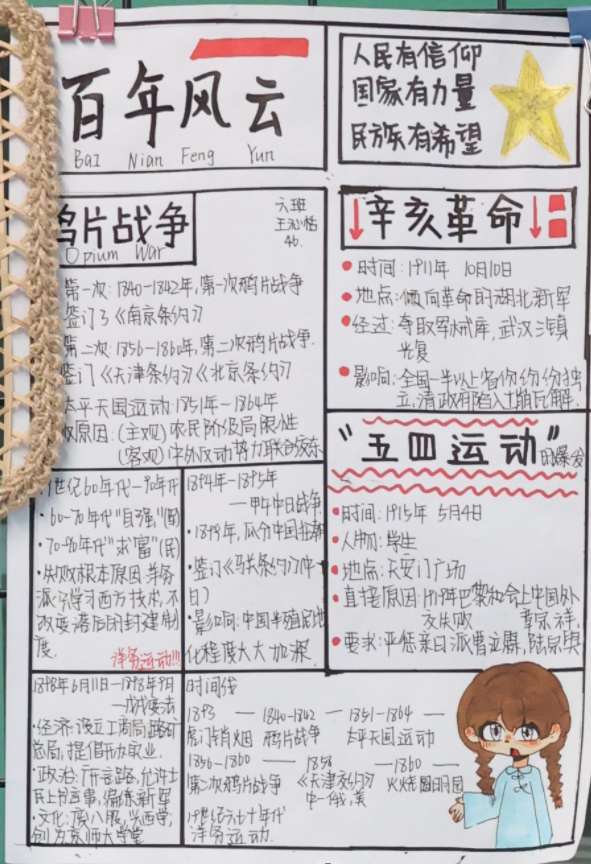 百年风云
Bai Nian Feng Yun
人民有信仰
国家有力量
民族有希望
鸦片战争
Opium War
六班
46.
第一次:1840-1842年,第一次鸦片战争
签订了《南京条约》
第二次:1856-1860年,第二次鸦片战争.
签订《天津条约》《北京条约》
太平天国运动:1851年-1864年
原因:(主观)农民阶级局限性
(客观)中外反动势力联合
辛亥革命
时间:1911年 10月10日
地点:倾向革命的湖北新军
经过:夺取军械库,武汉三镇
光复
影响:全国一半以上省份纷纷独
立,清政府陷入土崩瓦解.
“五四运动”的爆发
时间:1915年 5月4日
人物:学生
地点:天安门广场
直接原因:1919年巴黎和会上中国外
交失败 章宗祥,
要求:严惩亲日派曹立霖,陆宗舆
世纪60年代-90年代
·60-70年代“自强”
·70-90年代“求富”
·失败根本原因:洋务
派只学习西方技术,不
改变落后的封建制
度.
洋务运动!!!
1894年-1895年
—甲午中日战争
·1899年,瓜分中国狂潮
·签订《马关条约》(中-
日)
·影响:中国半殖民地
化程度大大加深.
1898年6月11日-1898年9月
—戊戌变法
·经济:设立工商局、路矿
总局,提倡办实业.
·政治:广开言路,允许士
民上书言事,编练新军
·文化:废八股,兴西学,
创办京师大学堂
时间线
1893 — 1840-1842 — 1851-1864 —
虎门销烟 鸦片战争 太平天国运动
1856-1860 — 1858 —1860—
第二次鸦片战争 《天津条约》 火烧圆明园
中-俄,美
19世纪六七十年代
洋务运动.